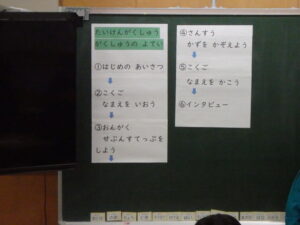 たいけんがくしゅう
がくしゅうの よてい
①はじめの あいさつ
②こくご
なまえを いおう
③おんがく
せぶんすてっぷを
しよう
④さんすう
かずを かぞえよう
⑤こくご
なまえを かこう
⑥インタビュー